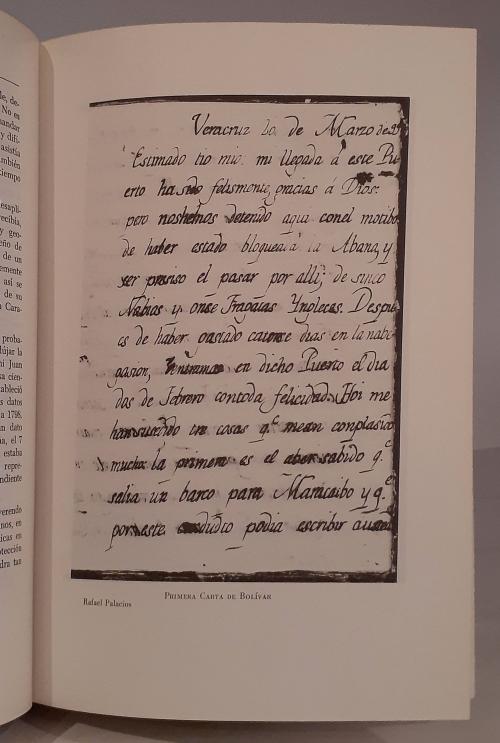 le, de-
No es
andar
y difí-
asistía
mbién
tiempo
esapli-
ecibía,
y geo-
eño de
de un
emente
así se
de su
Cara-
proba-
dújar la
ní Juan
sa cien-
tableció
s datos
a 1798.
n dato
, el 7
estaba
repre-
ndiente
verendo
nos, en
ticas en
otección
dra tan
Veracruz 20. de Marzo de
Estimado tio mio. mi llegada á este Pu
erto ha sido felismente, gracias á Dios:
pero noshemos detenido aqua conel motibo
de haber estado bloqueada la Abana, y
ser presiso el pasar por alli; de sinco
Nabios y onse Fragatas Ynglecas. Despu
es de haber gastado catorse dias en la nabe
gasion, entramos en dicho Puerto el dia
dos de Febrero contoda felicidad. Hoi me
han susedido tres cosas q.e mean conplasido
mucho: la primera es el aber sabido q.
salia un barco para Maracaibo y q.e
por este conducto podia escribir
Rafael Palacios
Primera Carta de Bolívar